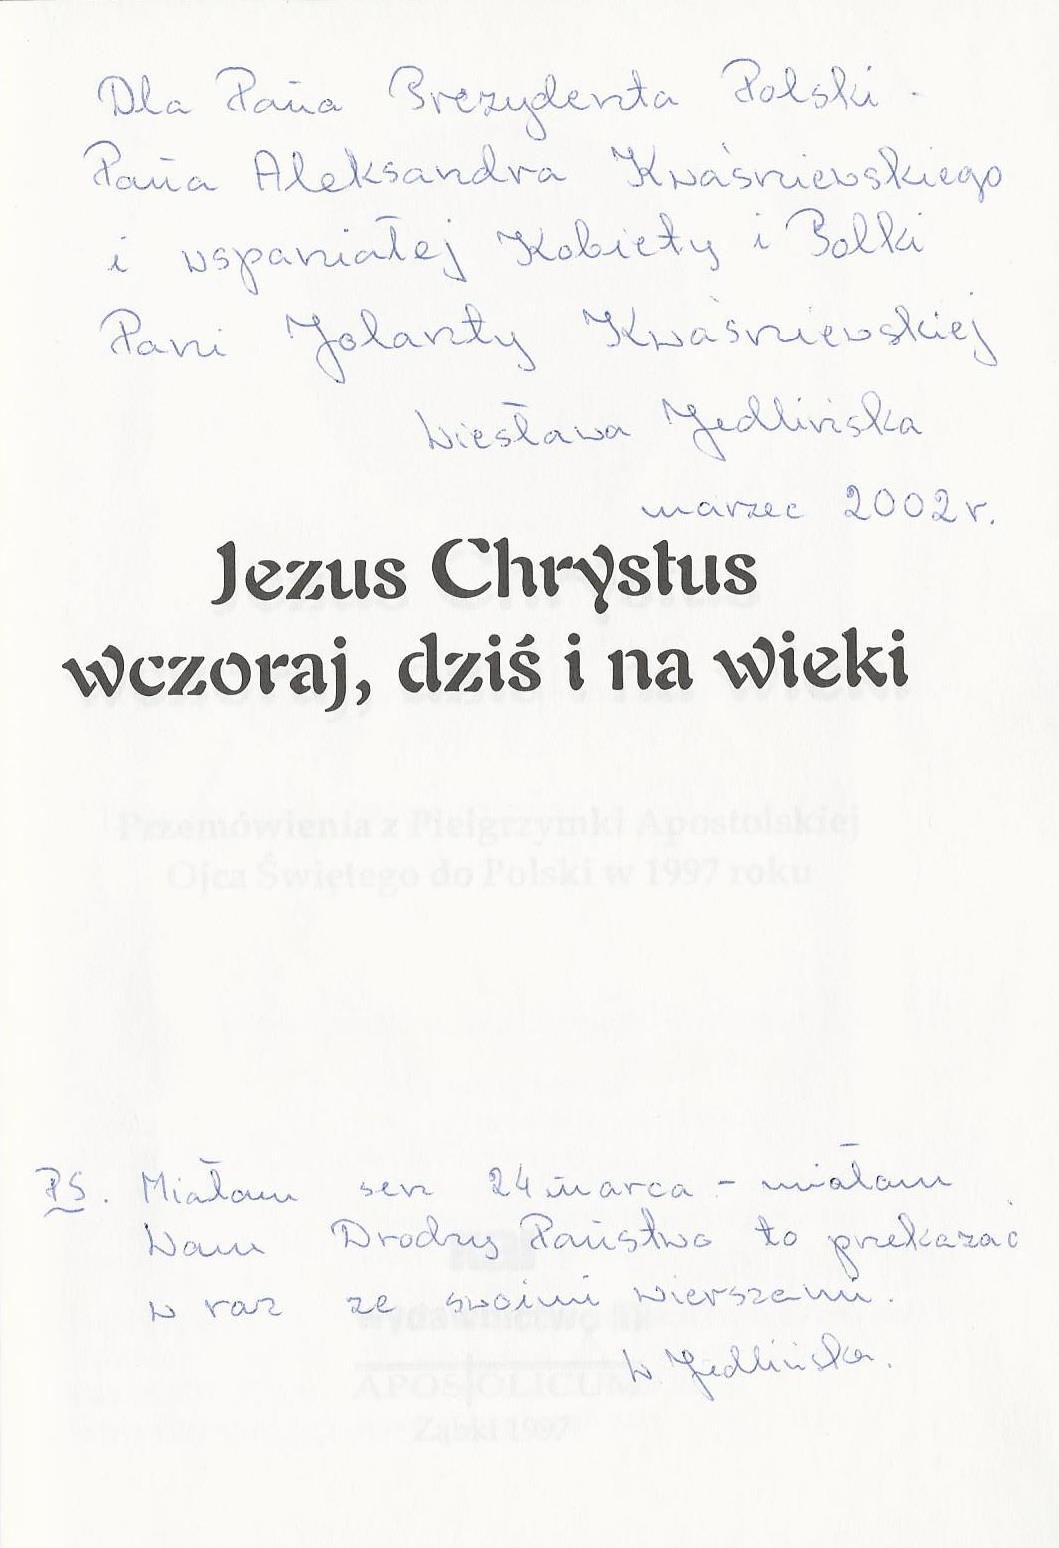 Dla Pana Prezydenta Polski -
Pana Aleksandra Kwaśniewskiego
i wspaniałej Kobiety i Polki
Pani Jolanty Kwaśniewskiej
Wiesława Jedlińska
marzec 2002 r.
Jezus Chrystus
wczoraj, dziś i na wieki
Przemówienia z Pielgrzymki Apostolskiej
Ojca Świętego do Polski w 1997 roku
PS. Miałam sen 24 marca - miałam
Wam Drodzy Państwo to przekazać
w raz ze swoimi wierszami.
W. Jedlińska.
Wydawnictwo
APOSTOLICUM
Ząbki 1997